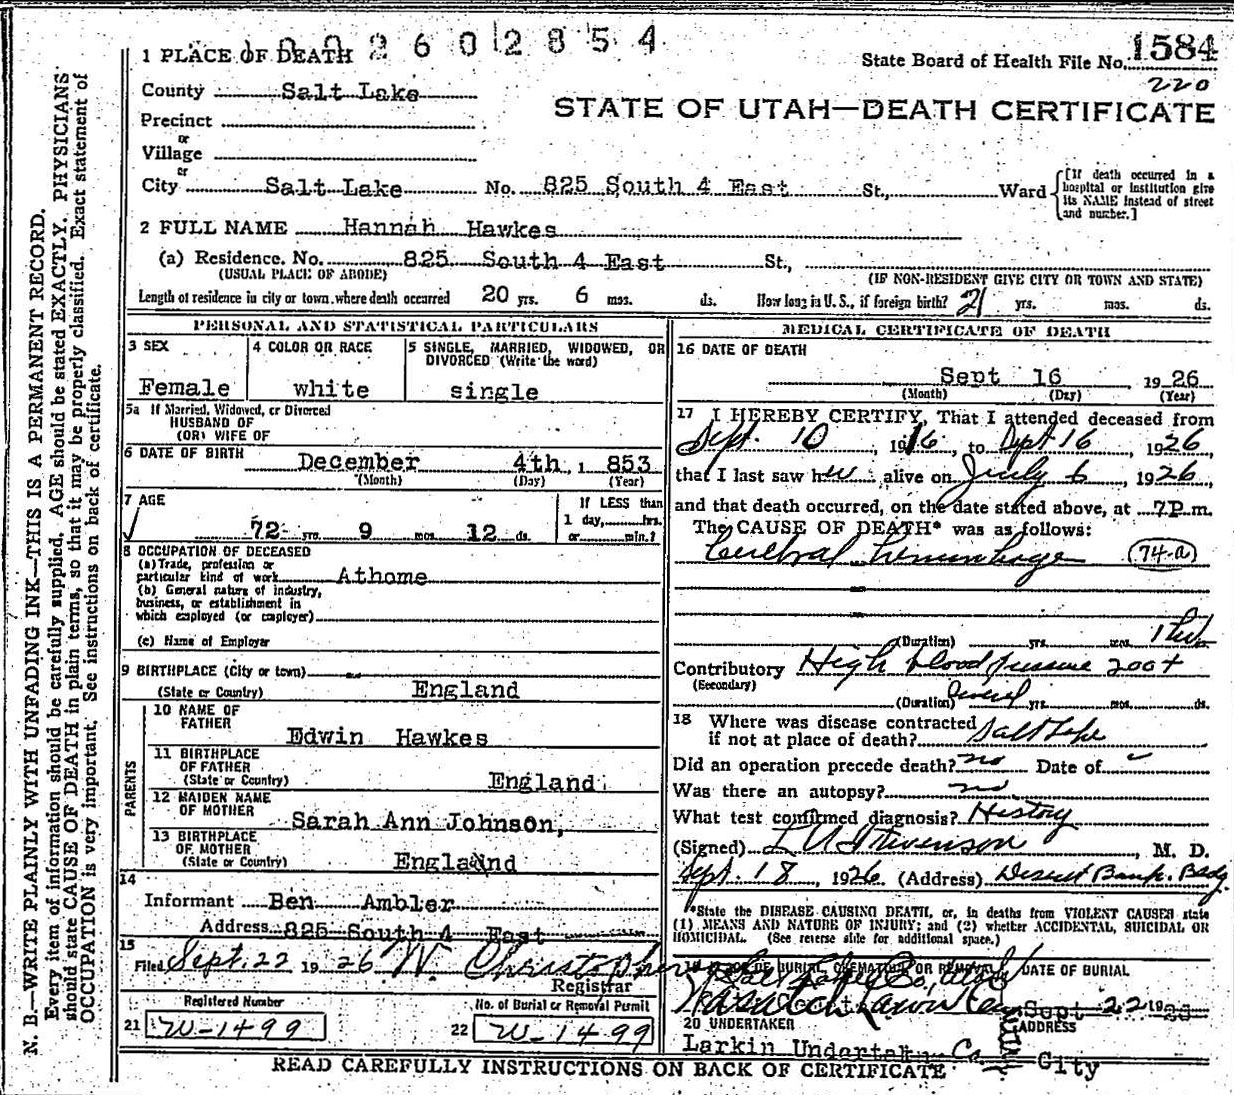 1 PLACE OF DEATH 1 0 0 2 6 0 2 8 5 4
State Board of Health File No. 1584
220
County Salt Lake
STATE OF UTAH—DEATH CERTIFICATE
Precinct
or
Village
or
City Salt Lake No. 825 South 4 East St, Ward
[If death occurred in a hospital or institution give its NAME instead of street and number.]
2 FULL NAME Hannah Hawkes
(a) Residence. No. 825 South 4 East St,
(USUAL PLACE OF ABODE) (IF NON-RESIDENT GIVE CITY OR TOWN AND STATE)
Length of residence in city or town where death occurred 20 yrs. 6 mos. ds. How long in U. S., if foreign birth? 21 yrs. mos. ds.
PERSONAL AND STATISTICAL PARTICULARS
3 SEX
Female
4 COLOR OR RACE
white
5 SINGLE, MARRIED, WIDOWED, OR
DIVORCED (Write the word)
single
5a If Married, Widowed, or Divorced
HUSBAND OF
(OR) WIFE OF
6 DATE OF BIRTH December 4th, 1 853
(Month) (Day) (Year)
7 AGE
72 yrs. 9 mos. 12 ds.
If LESS than
1 day, hrs.
or min.?
8 OCCUPATION OF DECEASED
(a) Trade, profession or
particular kind of work Athome
(b) General nature of industry,
business, or establishment in
which employed (or employer)
(c) Name of Employer
9 BIRTHPLACE (City or town)
(State or Country) England
PARENTS
10 NAME OF
FATHER Edwin Hawkes
11 BIRTHPLACE
OF FATHER
(State or Country) England
12 MAIDEN NAME
OF MOTHER Sarah Ann Johnson,
13 BIRTHPLACE
OF MOTHER
(State or Country) England
14
Informant Ben Ambler
Address 825 South 4 East
15
Filed Sept. 22 1926 W. Christopherson
Registrar
Registered Number
21 W-1499
No. of Burial or Removal Permit
22 W-1499
MEDICAL CERTIFICATE OF DEATH
16 DATE OF DEATH
Sept 16 1926
(Month) (Day) (Year)
17 I HEREBY CERTIFY, That I attended deceased from
Sept. 10, 1916, to Sept 16 1926
that I last saw her alive on July 6, 1926,
and that death occurred, on the date stated above, at 7P m.
The CAUSE OF DEATH* was as follows:
Cerebral hemorrhage (74-a)
(Duration) yrs. mos. 1
Contributory High blood pressure 200+
(Secondary)
(Duration) several yrs. mos. ds.
18 Where was disease contracted
if not at place of death? Salt Lake
Did an operation precede death? no Date of
Was there an autopsy? no
What test confirmed diagnosis? History
(Signed) Stevenson, M. D.
Sept. 18, 1926 (Address) Deseret Bank. Bldg.
*State the DISEASE CAUSING DEATH, or, in deaths from VIOLENT CAUSES state
(1) MEANS AND NATURE OF INJURY; and (2) whether ACCIDENTAL, SUICIDAL OR
HOMICIDAL. (See reverse side for additional space.)
19 PLACE OF BURIAL, CREMATION OR REMOVAL DATE OF BURIAL
Salt Lake Co, Utah
Wasatch Lawn Cem Sept 22 1926
20 UNDERTAKER ADDRESS
Larkin Undertakn Co City
READ CAREFULLY INSTRUCTIONS ON BACK OF CERTIFICATE
N. B.—WRITE PLAINLY WITH UNFADING INK—THIS IS A PERMANENT RECORD.
Every item of information should be carefully supplied. AGE should be stated EXACTLY. PHYSICIANS
should state CAUSE OF DEATH in plain terms, so that it may be properly classified. Exact statement of
OCCUPATION is very important. See instructions on back of certificate.